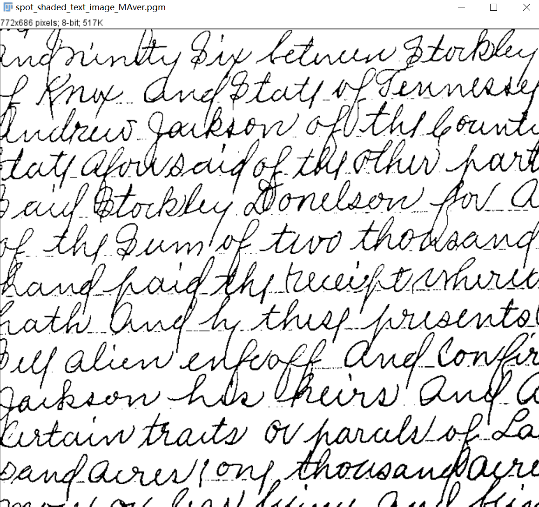 spot_shaded_text_image_MAver.pgm
772x686 pixels; 8-bit; 517K
and ninety Six between Stockley
of Knox And State of Tennessey
Andrew Jackson of the Counti
tate aforesaid of the other part
Said Stockley Donelson for A
of the Sum of two thousand
hand paid the receipt wherco
hath And by these presents
Sell alien enfeoff And Confir
Jackson his heirs And A
Certain traits or parcels of La
sand acres one thousand acre